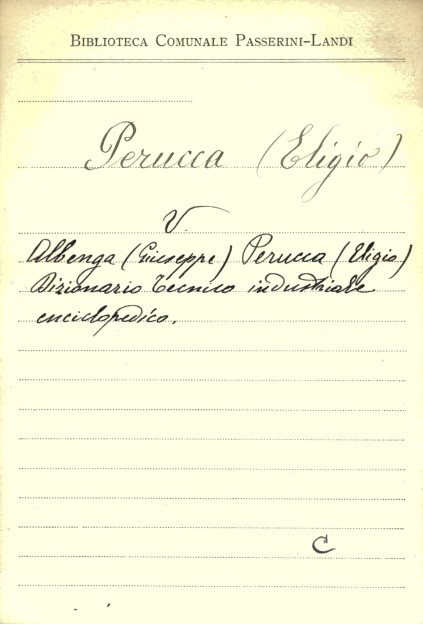 BIBLIOTECA COMUNALE PASSERINI-LANDI
Perucca (Eligio)
V.
Albenga (Giuseppe) Perucca (Eligio)
Dizionario Tecnico industriale
enciclopedico.
C